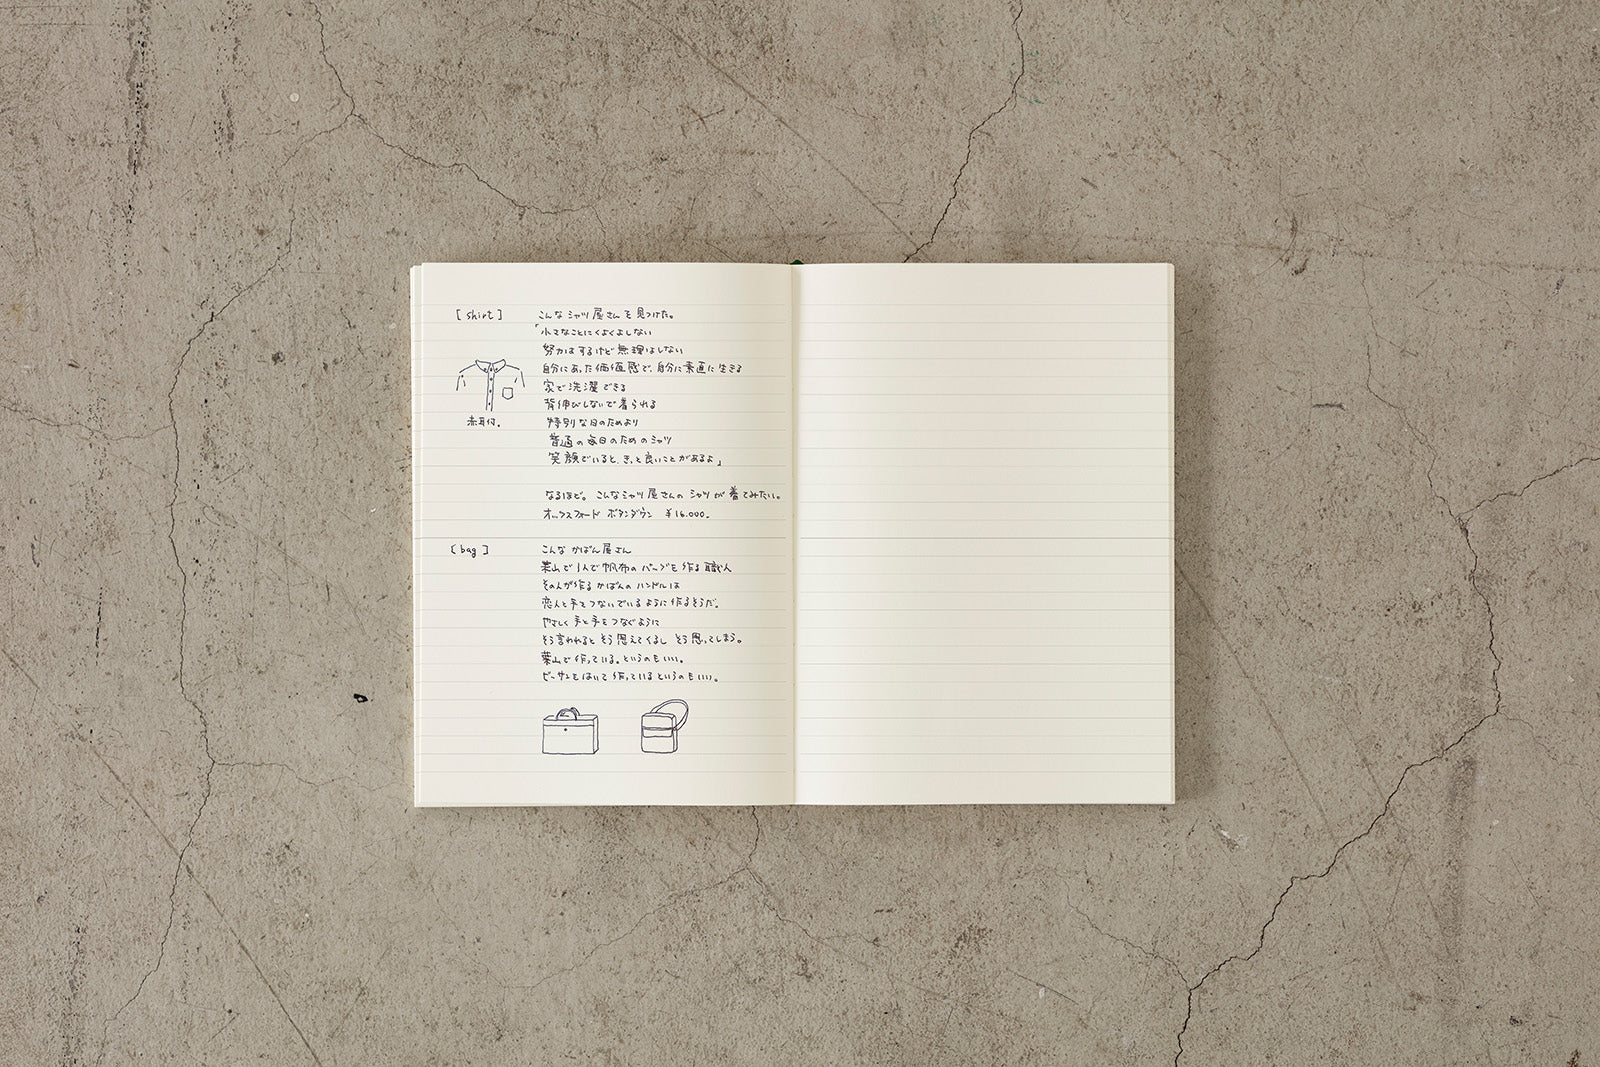 [ shirt ]
こんなシャツ屋さんを見つけた。
「小さなことにくよくよしない
努力はするけど無理はしない
自分にあった価値感で、自分に素直に生きる
家で洗濯できる
背伸びしないで着られる
赤耳付。
特別な日のためより
普通の毎日のためのシャツ
笑顔でいると、きっと良いことがあるよ」
なるほど。こんなシャツ屋さんのシャツが着てみたい。
オックスフォード ボタンダウン ¥16.000.
[ bag ]
こんなかばん屋さん
葉山で1人で帆布のバッグを作る職人
その人が作るかばんのハンドルは
恋人と手をつないでいるように作るそうだ。
やさしく手と手をつなぐように
そう言われるとそう思えてくるし そう思ってしまう。
葉山で作っている。というのもいい。
ビーサンをはいて作っているというのもいい。